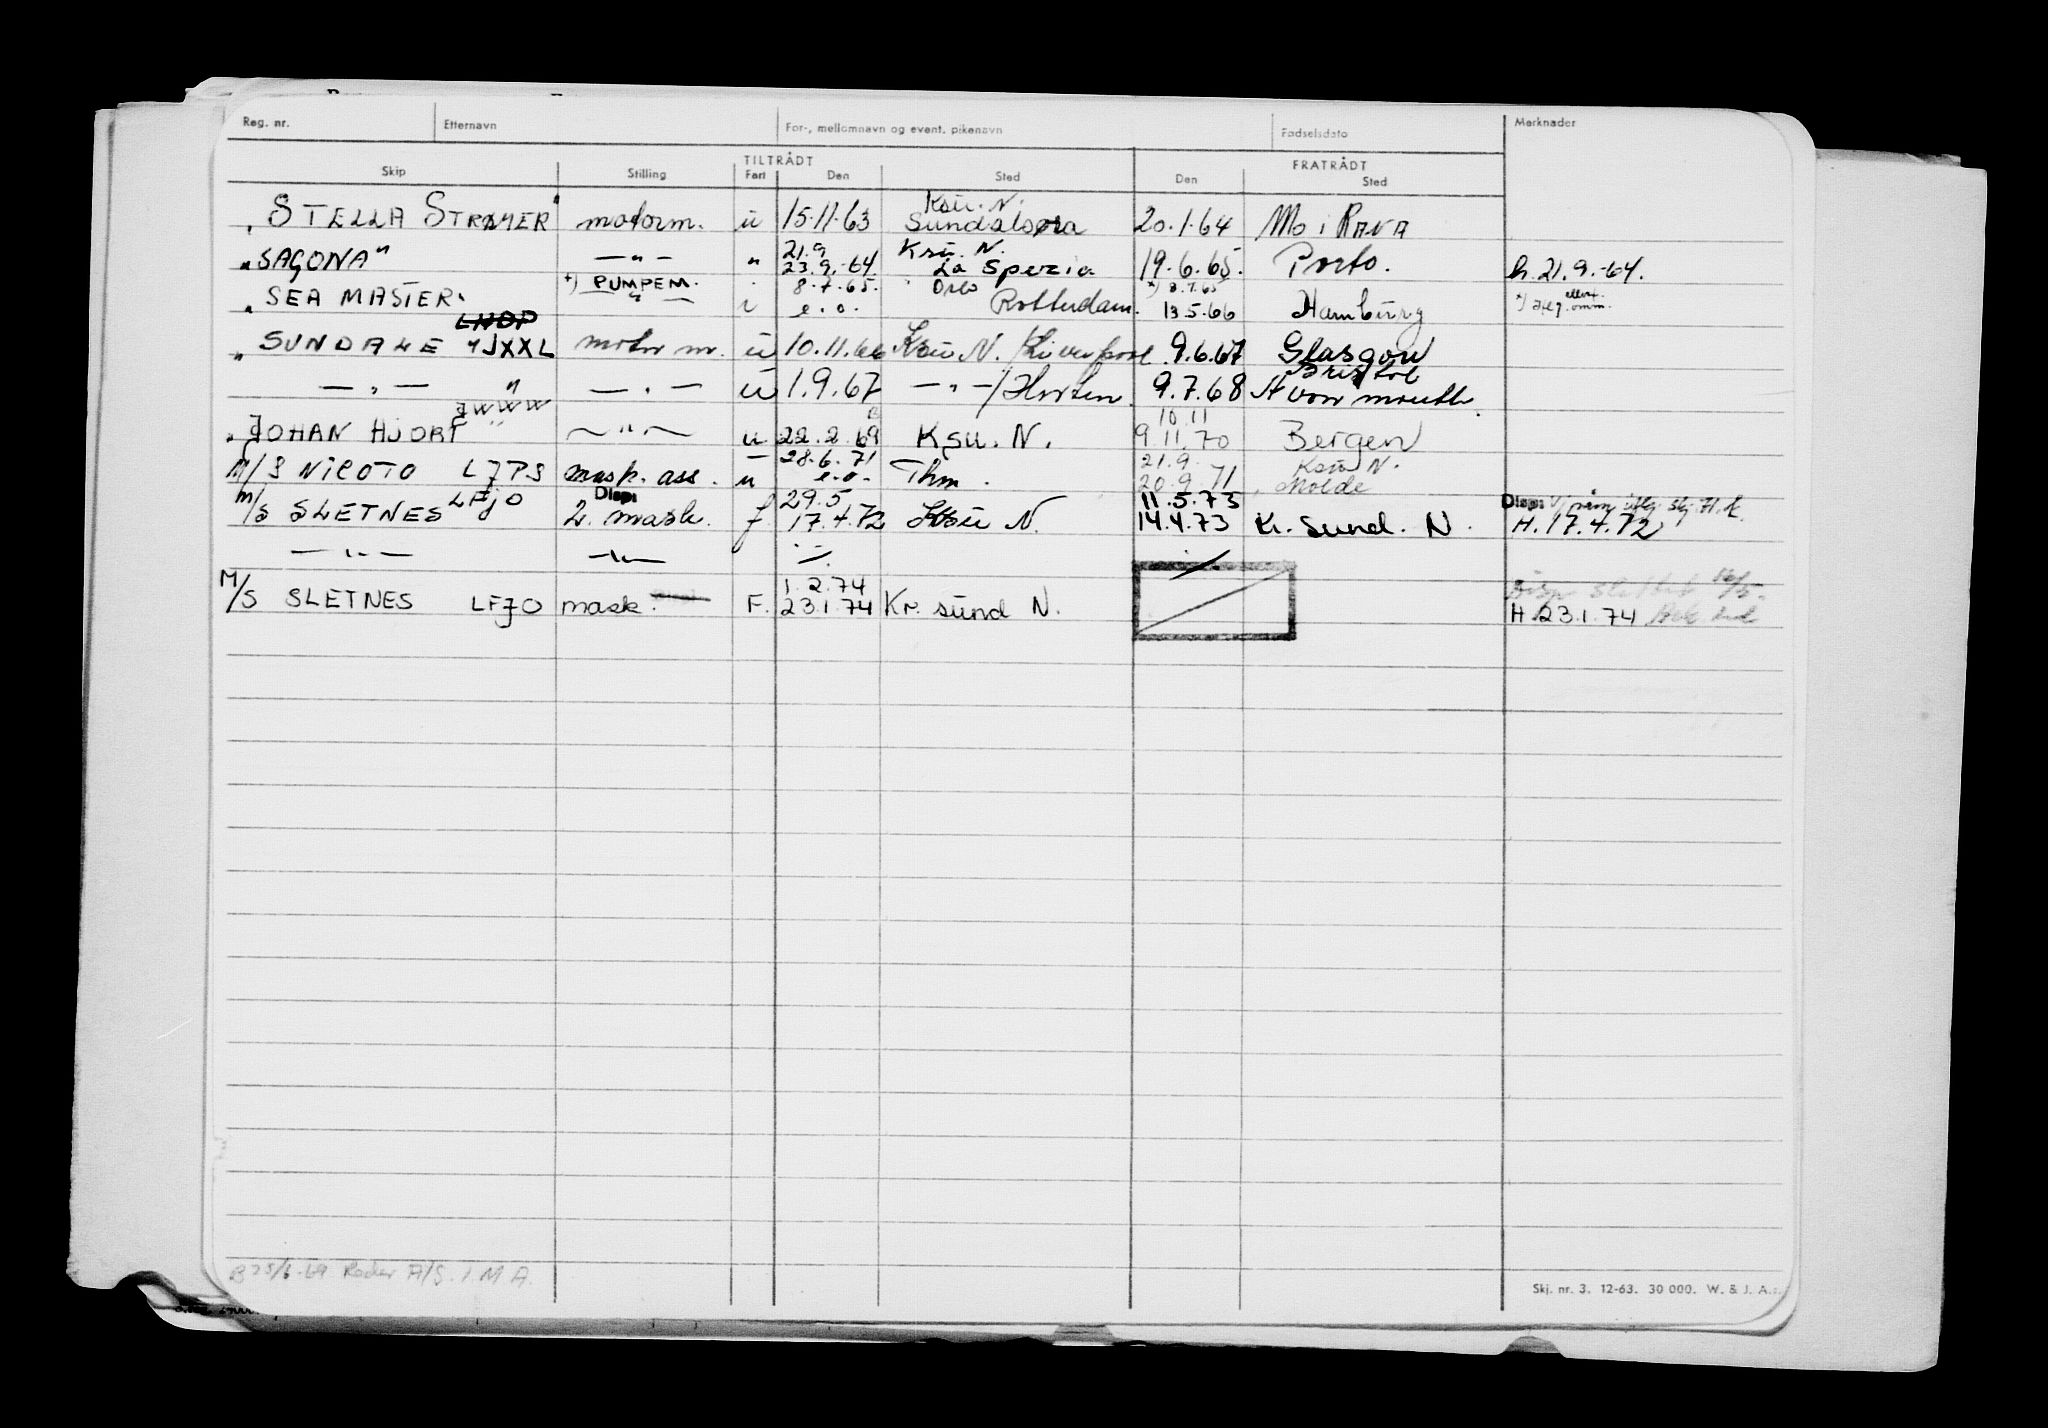 Reg. nr. Etternavn For-, mellomnavn og event. pikenavn Fødselsdato Merknader
TILTRÅDT FRATRÅDT
Skip Stilling Fart Den Sted Den Sted
Ksu. N.
"STELLA STRØMER" motorm. u 15.11.63 Sundalsøra 20.1.64 Mo i RANA
21.9 Ksu. N.
"SAGONA" — " — " 23.9.-64. La Spezia 19.6.65. Porto. h. 21.9.-64.
*) PUMPEM. 8.7.65. Oslo *) 8.7.65
"SEA MASTER" — " — e.o. Rotterdam. 13.5.66 Hamburg *)
LHOP
"SUNDALE" JXXL motor m. u 10.11.66 Ksu N. / Liverpool 9.6.67 Glasgow
Bristol
— " — " — " — u 1.9.67 — " — / Horten 9.7.68 Avonmouth.
JWWW 10.11
"JOHAN HJORT — " — u 22.2.69 Ksu. N. 9.11.70 Bergen
28.6.71 21.9. Ksu N.
M/S NICOTO LJPS mask. ass. u e.o. Thm. 20.9.71 Molde
LFJO Disp. 29.5 11.5.73 Disp.
M/S SLETNES 2. mask. f 17.4.72 Ksu N. 14.4.73 Kr. sund. N. H. 17.4.72
— " — — " —
1.2.74
M/S SLETNES LFJO mask. F. 23.1.74 Kr. sund N. H 23.1.74
B 25/6-69 Reder A/S. I. M A.
Skj. nr. 3. 12-63. 30 000. W. & J. A.s.